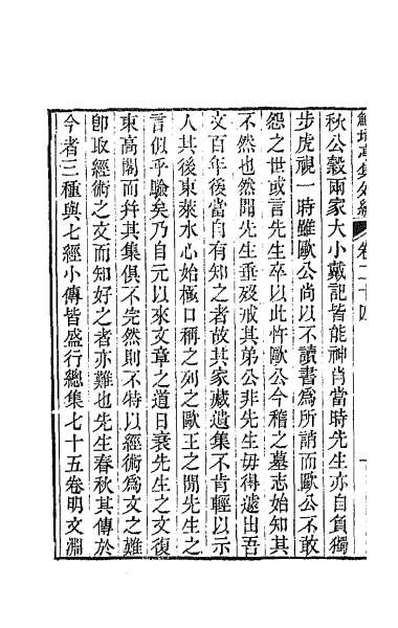 鮚埼亭集外編 卷二十四
秋公穀兩家大小戴記皆能神肖當時先生亦自負獨
步虎視一時雖歐公尚以不讀書為所誚而歐公不敢
怨之世或言先生卒以此忤歐公今稽之墓志始知其
不然也然聞先生垂歿戒其弟公非先生毋得遽出吾
文百年後當自有知之者故其家藏遺集不肯輕以示
人其後東萊水心始極口稱之列之歐王之間先生之
言似乎驗矣乃自元以來文章之道日衰先生之文復
東高閣而幷其集俱不完然則不特以經術為文之難
卽取經術之文而知好之者亦難也先生春秋其傳於
今者三種與七經小傳皆盛行總集七十五卷明文淵